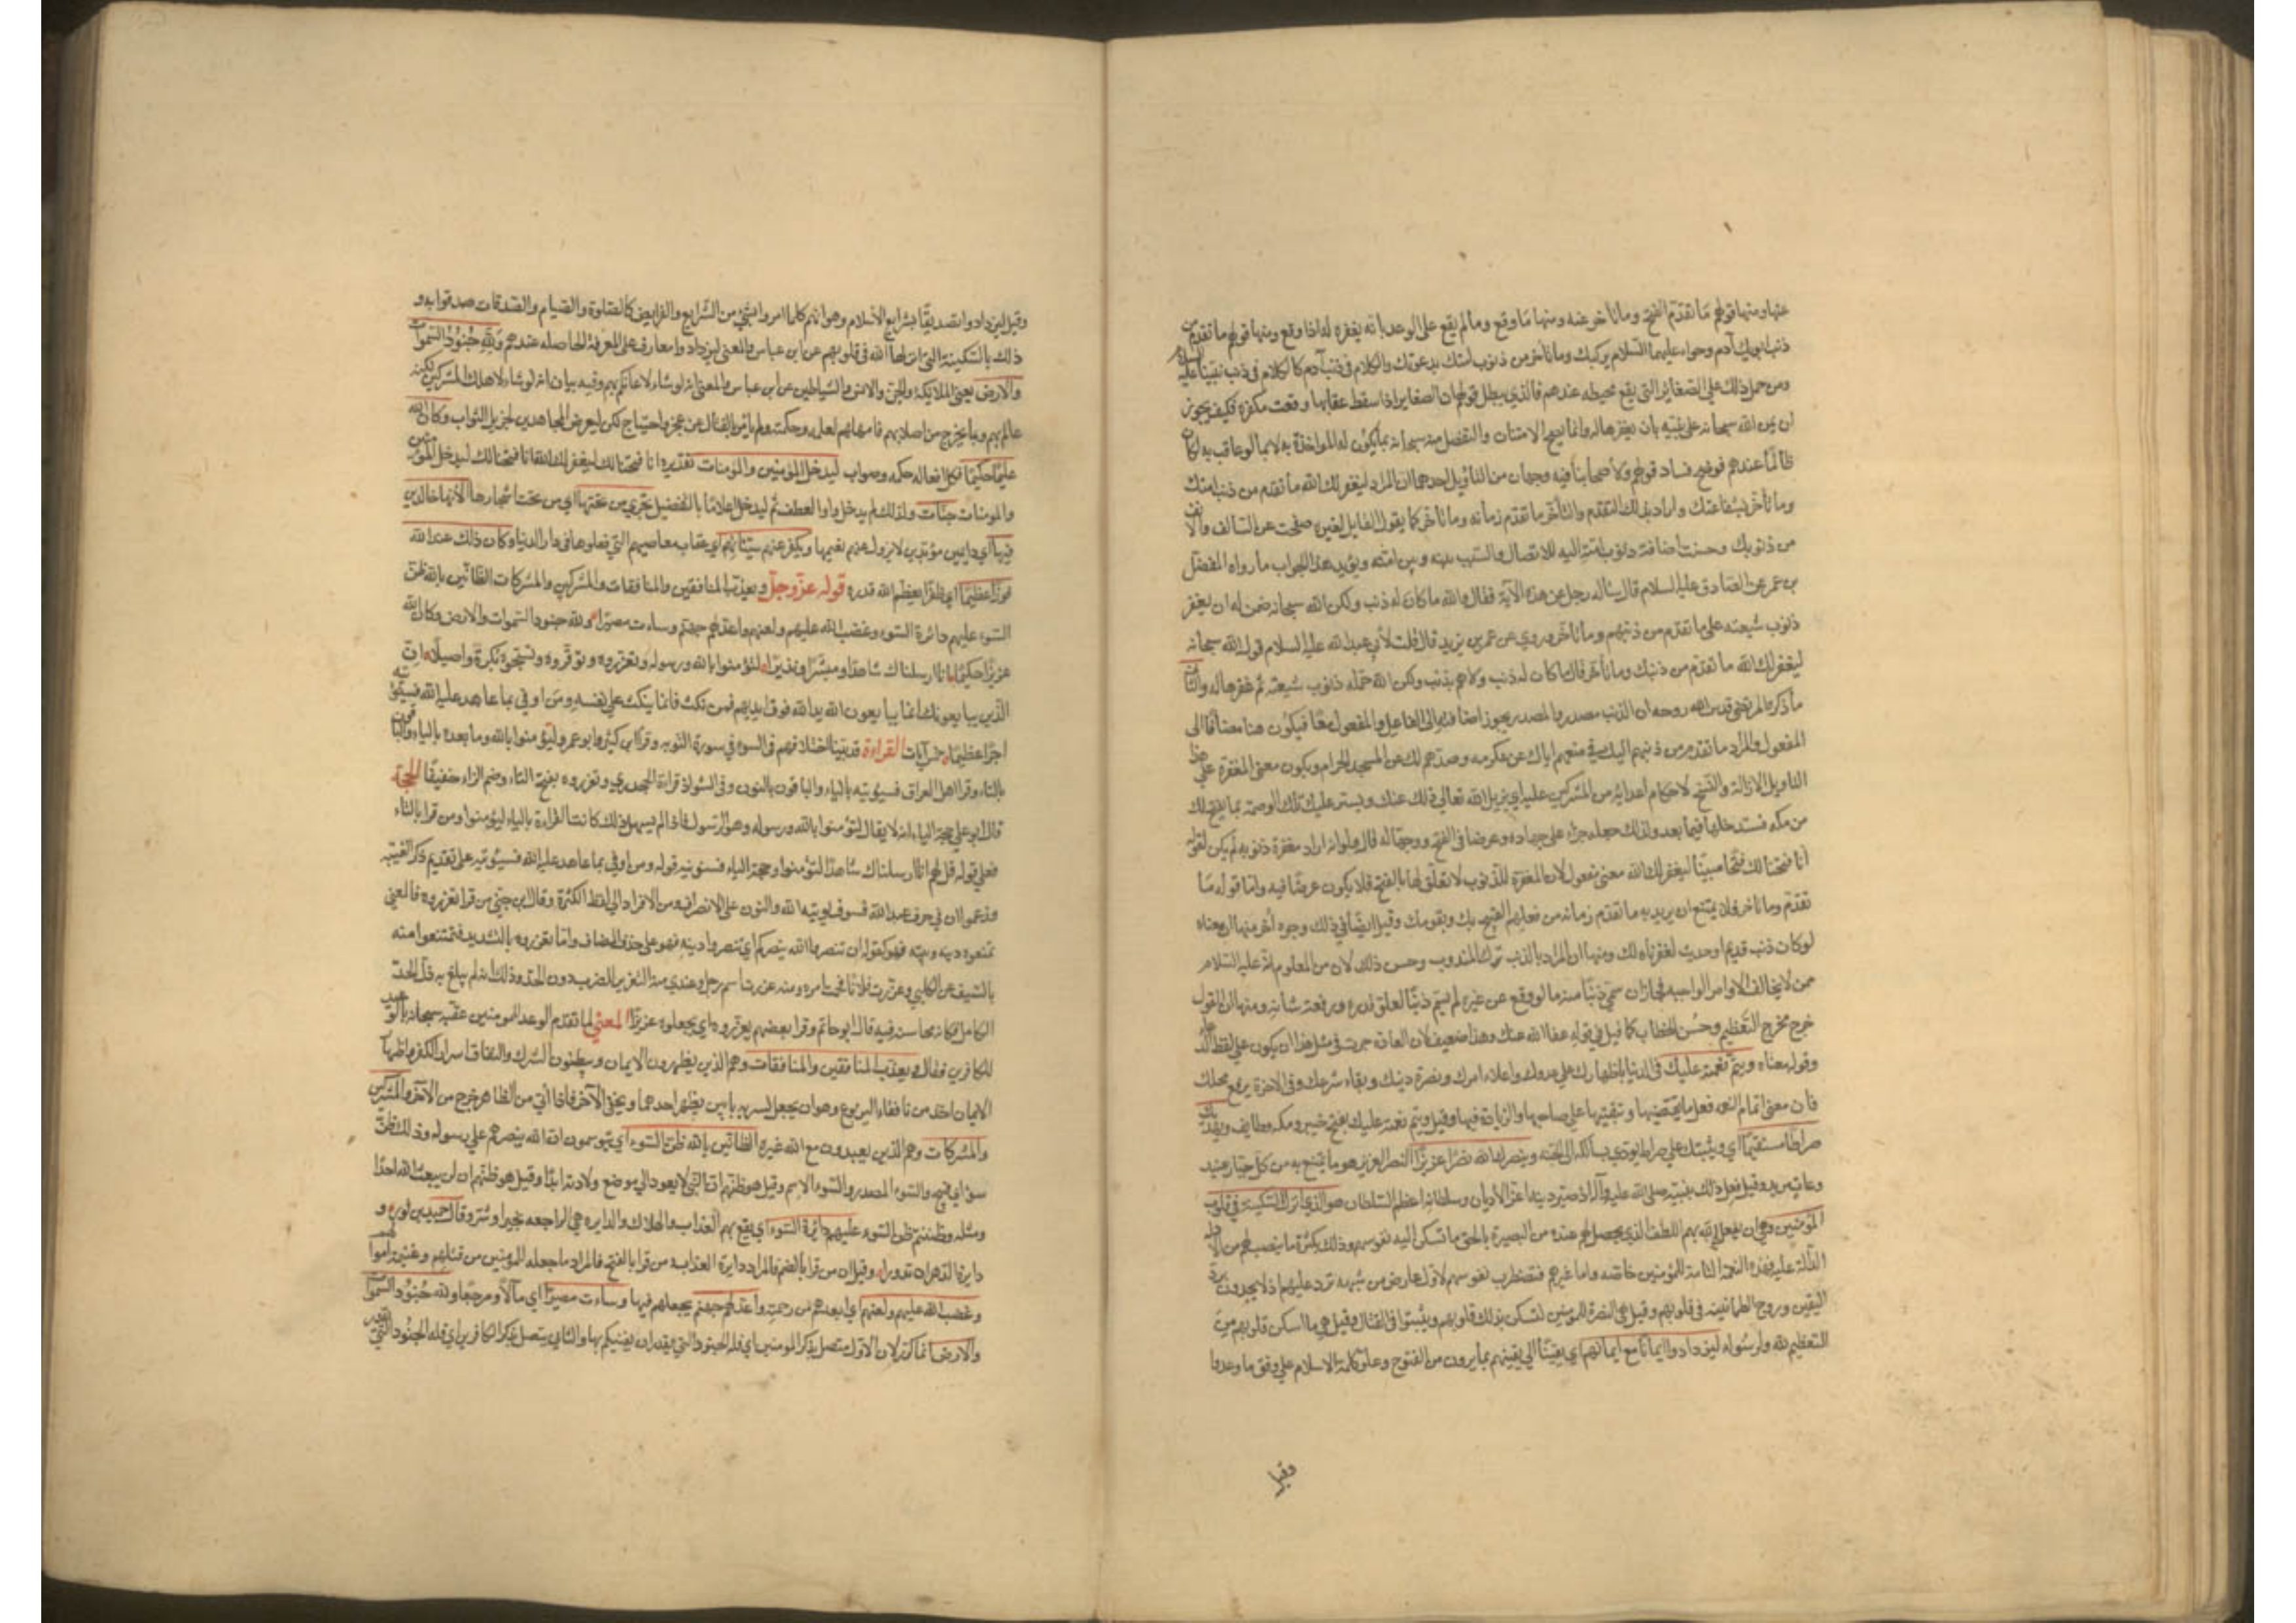 عنها ومنها قولهم ما تقدم الفتح وما تاخر عنه ومنها ما وقع وما لم يقع على الوعد بانه يغفره له اذا وقع ومنها قولهم ما تقدم من
ذنب ابويك آدم وحواء عليهما السلام ببركتك وما تاخر من ذنوب امتك بدعوتك والكلام في ذنب آدم كالكلام في ذنب نبينا عليه السلام
ومن حمل ذلك على الصغاير التي يقع محبطه عندهم فالذي يبطل قولهم ان الصغاير اذا سقط عقابها وقعت مكفرة فكيف يجوز
ان يمن الله سبحانه على نبيه بان يغفرها له وانما يصح الامتنان والتفضل منه سبحانه بما يكون له المواخذة به لا بما لو عاقب به لكان
ظالمًا عندهم فوضح فساد قولهم ولاصحابنا فيه وجهان من التاويل احدهما ان المراد ليغفر لك الله ما تقدم من ذنب امتك
وما تأخر بشفاعتك واراد بذلك التقدم والتأخر ما تقدم زمانه وما تأخر كما يقول القايل لغيره صفحت عن السالف والآنف
من ذنوبك وحسنت اضافة ذنوب امته اليه للاتصال والسبب بينه وبين امته ويؤيد هذا الجواب ما رواه المفضل
بن عمر عن الصادق عليه السلام قال سئاله رجل عن هذه الآية فقال والله ما كان له ذنب ولكن الله سبحانه ضمن له ان يغفر
ذنوب شيعته على ما تقدم من ذنبهم وما تاخر وروي عن عمر بن يزيد قال قلت لأبي عبد الله عليه السلام قول الله سبحانه
ليغفر لك الله ما تقدم من ذنبك وما تأخر قال ما كان له ذنب ولا هم بذنب ولكن الله حمله ذنوب شيعته ثم غفرها له والثاني
ما ذكره المرتضى قدس الله روحه ان الذنب مصدر والمصدر يجوز اضافته الى الفاعل والمفعول معًا فيكون هنا مضافًا الى
المفعول والمراد ما تقدم من ذنبهم اليك في منعهم اياك عن مكه وصدهم لك عن المسجد الحرام ويكون معنى المغفرة على هذا
التاويل الازالة والنسخ لاحكام أعدايه من المشركين عليه اي يزيل الله تعالى ذلك عنك ويستر عليك تلك الوصمة بما يفتح لك
من مكه فستدخلها فيما بعد ولذلك جعله جزاء على جهاده وعرضا في الفتح ووجها له قال ولو انه اراد مغفرة ذنوبه لم يكن لقوله
انا فتحنا لك فتحا مبينًا ليغفر لك الله معنى معقول لان المغفرة للذنوب لا تعلق لها بالفتح فلا يكون غرضًا فيه واما قوله ما
تقدم وما تاخر فلا يمتنع ان يريد به ما تقدم زمانه من فعلهم القبيح بك وبقومك وقيل ايضًا في ذلك وجوه أخر منها ان معناه
لو كان ذنب قديم او حديث لغفرناه لك ومنها ان المراد بالذنب ترك المندوب وحسن ذلك لان من المعلوم انه عليه السلام
ممن لا يخالف الاوامر الواجبه فجاز ان سمي ذنبًا منه ما لو وقع عن غيره لم يسم ذنبًا لعلو قدره ورفعة شانه ومنها ان القول
خرج مخرج التعظيم وحُسن الخطاب كما قيل في قوله عفا الله عنك وهذا ضعيف لان العادة جرت في مثل هذا ان يكون على لفظ الدعاء
وقوله معناه ويتم نعمته عليك في الدنيا باظهارك على عدوك واعلاء امرك ونصرة دينك وبقاء شرعك وفي الاخرة برفع محلك
فان معنى اتمام النعمه فعل ما يقتضيها وتبقيتها على صاحبها والزيادة فيها وقيل ويتم نعمته عليك بفتح خيبر ومكه وطايف ويهديك
صراطًا مستقيمًا اي ويثبتك على صراط يؤدي بسالكه الى الجنه وينصرك الله نصرًا عزيزًا النصر العزيز هو ما يمتنع به من كل جبار عنيد
وعات مريد وقيل فعل ذلك بنبيه صلى الله عليه وآله اذ صير دينه اعز الاديان وسلطانه اعظم السلطان هو الذي انزل السكينة في قلوب
المؤمنين وهي ان يفعل الله بهم اللطف الذي يحصل لهم عنده من البصيرة بالحق ما تسكن اليه نفوسهم وذلك بكثرة ما ينصب لهم من الادلة
الدالة عليه فهذه النعمة التامة للمؤمنين خاصه واما غيرهم فتضطرب نفوسهم لاول عارض من شبهه ترد عليهم اذ لا يجدون برد
اليقين وروح الطمانينه في قلوبهم وقيل هي النصرة للمؤمنين لتسكن بذلك قلوبهم ويثبتوا في القتال وقيل هي ما اسكن قلوبهم من
التعظيم لله ولرسوله ليزدادوا ايمانًا مع ايمانهم اي يقينًا الى يقينهم بما يرون من الفتوح وعلو كلمة الاسلام على وفق ما وعدوا
وقيل
وقيل ليزدادوا تصديقًا بشرايع الاسلام وهو انهم كلما امروا بشيء من الشرايع والفرايض كالصلوة والصيام والصدقات صدقوا به و
ذلك بالسكينة التي انزلها الله في قلوبهم عن ابن عباس والمعنى ليزدادوا معارف على المعرفة الحاصله عندهم ولله جنود السموات
والارض يعني الملايكة والجن والانس والشياطين عن ابن عباس والمعنى انه لو شاء لاعانكم بهم وفيه بيان انه لو شاء لاهلك المشركين لكنه
عالم بهم وبما يخرج من اصلابهم فامهلهم لعلمه وحكمته ولم يامر بالقتال عن عجز واحتياج لكن ليعرض المجاهدين لجزيل الثواب وكان الله
عليمًا حكيمًا فكل افعاله حكمه وصواب ليدخل المؤمنين والمومنات تقديره انا فتحنا لك ليغفر لك الله انا فتحنا لك ليدخل المؤمنين
والمومنات جنات ولذلك لم يدخل واوا لعطف ثم ليدخل اعلامًا بالتفضيل تجري من تحتها اي من تحت اشجارها الأنهار خالدين
فيها اي دايمين مؤبدين لا يزول عنهم نعيمها ويكفر عنهم سيئاتهم اي عقاب معاصيهم التي فعلوها في دار الدنيا وكان ذلك عند الله
فوزًا عظيمًا اي ظفرًا يعظم الله قدره قوله عز وجل ويعذب المنافقين والمنافقات والمشركين والمشركات الظانين بالله ظن
السوء عليهم دائرة السوء وغضب الله عليهم ولعنهم واعد لهم جهنم وساءت مصيرًا ولله جنود السموات والارض وكان الله
عزيزًا حكيمًا انا ارسلناك شاهدًا ومبشرًا ونذيرًا لتؤمنوا بالله ورسوله وتعزروه وتوقروه وتسبحوه بكرة واصيلًا ان
الذين يبايعونك انما يبايعون الله يد الله فوق ايديهم فمن نكث فانما ينكث على نفسه ومن اوفى بما عاهد عليه الله فسيؤتيه
اجرًا عظيمًا آيات القراءة قد بينا اختلافهم في السوء في سورة التوبه وقرأ ابن كثير وابو عمرو ليؤمنوا بالله وما بعده بالياء والباقون
بالتاء وقرا اهل العراق فسيؤتيه بالياء والباقون بالنون وفي الشواذ قراءة الجحدري وتعزروه بفتح التاء وضم الزاء خفيفًا الحجة
قال ابو علي حجة الياء انه لا يقال لتؤمنوا بالله ورسوله وهو الرسول فاذا لم يسهل ذلك كانت القراءة بالياء ليؤمنوا ومن قرا بالتاء
فعلى قوله قل لهم انا ارسلناك شاهدًا لتؤمنوا وحجة الياء فسنؤتيه قوله ومن اوفى بما عاهد عليه الله فسيؤتيه على تقديم ذكر الغيبه
وزعموا ان في حرف عبد الله فسوف يؤتيه الله والنون على الانصراف من الافراد الى لفظ الكثرة وقال ابن جني من قرا تعزروه فالمعنى
تمنعوه دينه ونبيه فهو كقوله ان تنصروا الله ينصركم اي تنصروا دينه فهو على حذف المضاف واما تعزروه بالتشديد فتمتنعوا منه
بالسيف عن الكلبي وعزرت فلانًا فخمت امره ومنه عزرت اسم رجل وعندي منه التعزير للضرب دون الحد وذلك انه لم يبلغ به ذل الحد
الكامل فكانه محاسنه فيه قال ابو حاتم وقرا بعضهم يعززوه اي يجعلوه عزيزًا المعنى لما تقدم الوعد للمؤمنين عقبه سبحانه بالوعيد
للكافرين فقال ويعذب المنافقين والمنافقات وهم الذين يظهرون الايمان ويبطنون الشرك والنفاق اسرار الكفر واظهار
الايمان اخذ من نافقاء اليربوع وهو ان يجعل لسربه بابين يظهر احدهما ويخفي الآخر فاذا أتي من الظاهر خرج من الآخر والمشركين
والمشركات وهم الذين يعبدون مع الله غيره الظانين بالله ظن السوء اي يتوهمون ان الله ينصرهم على رسوله وذلك ظن
سوء اي قبيح والسوء المصدر والسوء الاسم وقيل هو ظنهم ان النبي لا يعود الى موضع ولادته ابدًا وقيل هو ظنهم ان لن يبعث الله احدًا
ومثله وظننتم ظن السوء عليهم دائرة السوء اي يقع بهم العذاب والهلاك والدايره هي الراجعه بخير او شر وقال حميد بن ثور و
دايرة الدهر ان تدورا وقيل ان من قرا بالضم فالمراد دايرة العذاب ومن قرا بالفتح فالمراد ما جعله للمؤمنين من قتلهم وغنيمة اموالهم
وغضب الله عليهم ولعنهم اي ابعدهم من رحمته واعد لهم جهنم يجعلهم فيها وساءت مصيرًا اي مآلًا ومرجعًا ولله جنود السموات
والارض انما كرر لان الاول متصل بذكر المومنين اي فله الجنود التي يقدر ان يعينكم بها والثاني يتصل بذكر الكافرين اي فله الجنود التي يقدر